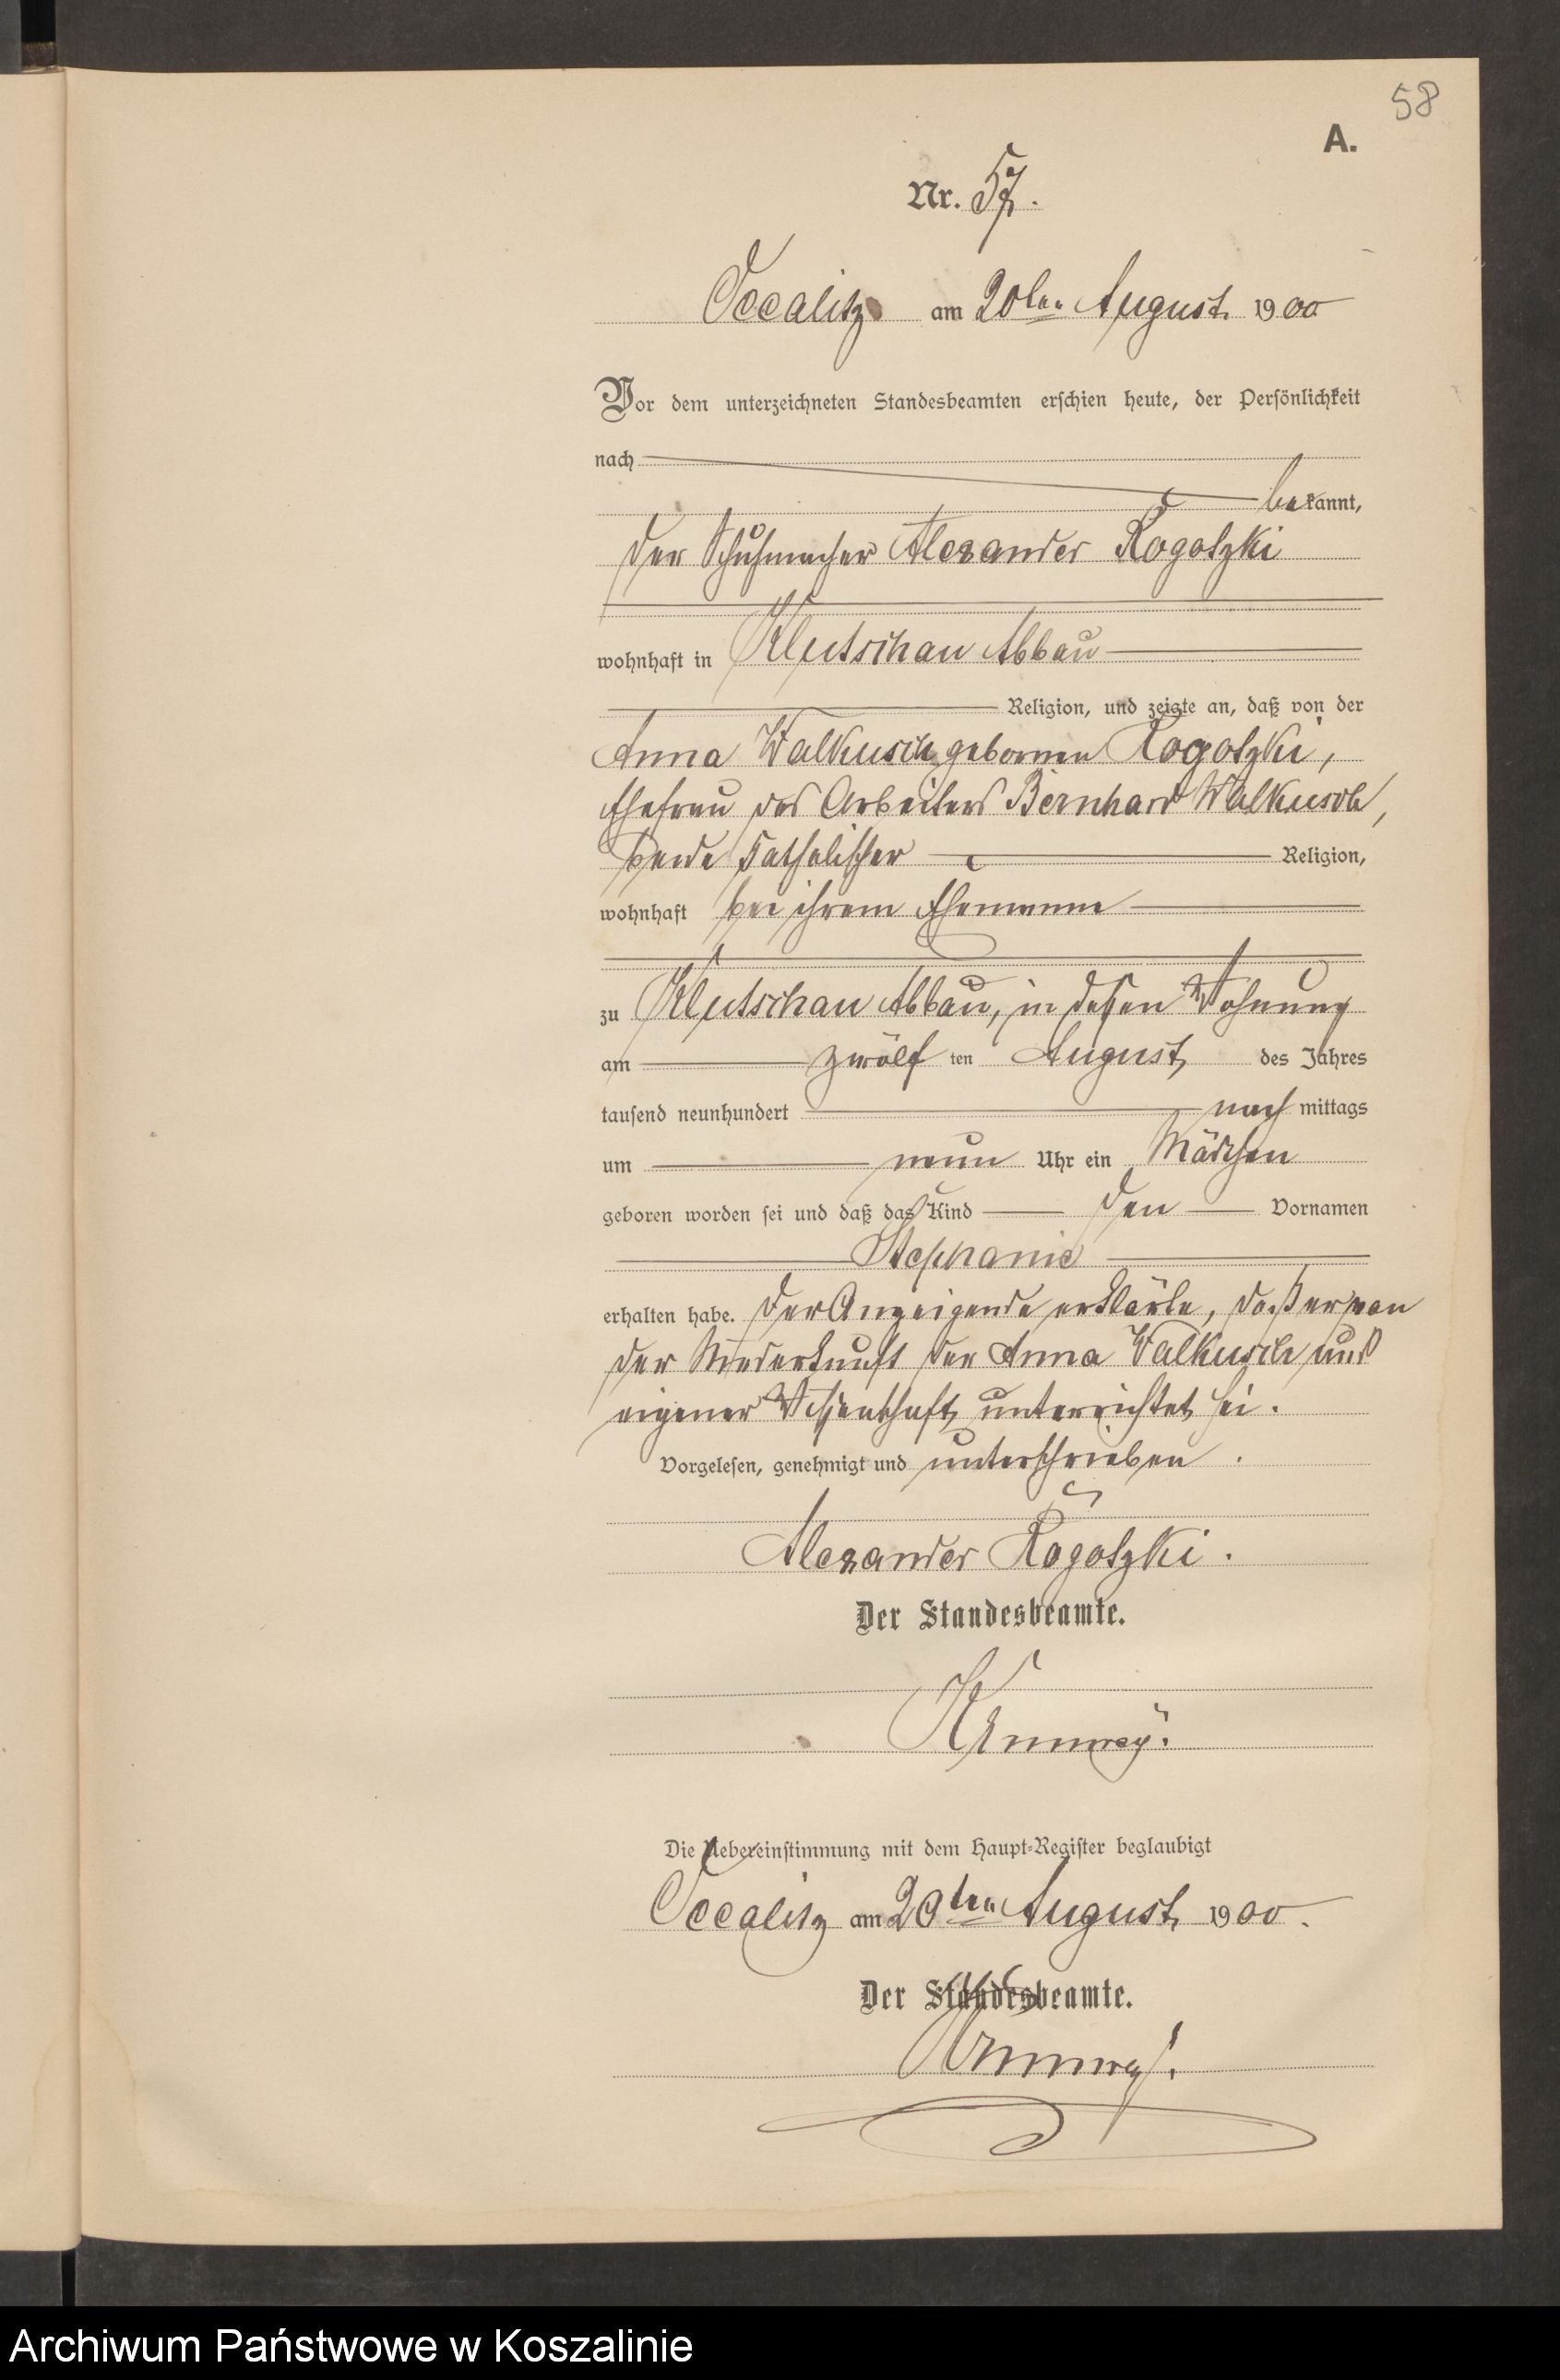 58
A.
Nr. 57.
Occalitz am 20ten August 1900
Vor dem unterzeichneten Standesbeamten erschien heute, der Persönlichkeit
nach
bekannt,
der Schuhmacher Alexander Rogotzki
wohnhaft in Klutschau Abbau
Religion, und zeigte an, daß von der
Anna Walkusch geborenen Rogotzki,
Ehefrau des Arbeiters Bernhard Walkusch,
beide katholischer Religion,
wohnhaft bei ihrem Ehemanne
zu Klutschau Abbau, in dessen Wohnung
am zwölf ten August des Jahres
tausend neunhundert nach mittags
um neun Uhr ein Mädchen
geboren worden sei und daß das Kind den Vornamen
Stephanie
erhalten habe. Der Anzeigende erklärte, daß er von
der Niederkunft der Anna Walkusch aus
eigener Wissenschaft unterrichtet sei.
Vorgelesen, genehmigt und unterschrieben.
Alexander Rogotzki.
Der Standesbeamte.
Die Uebereinstimmung mit dem Haupt-Register beglaubigt
Occalitz am 20ten August 1900.
Der Standesbeamte.
Archiwum Państwowe w Koszalinie